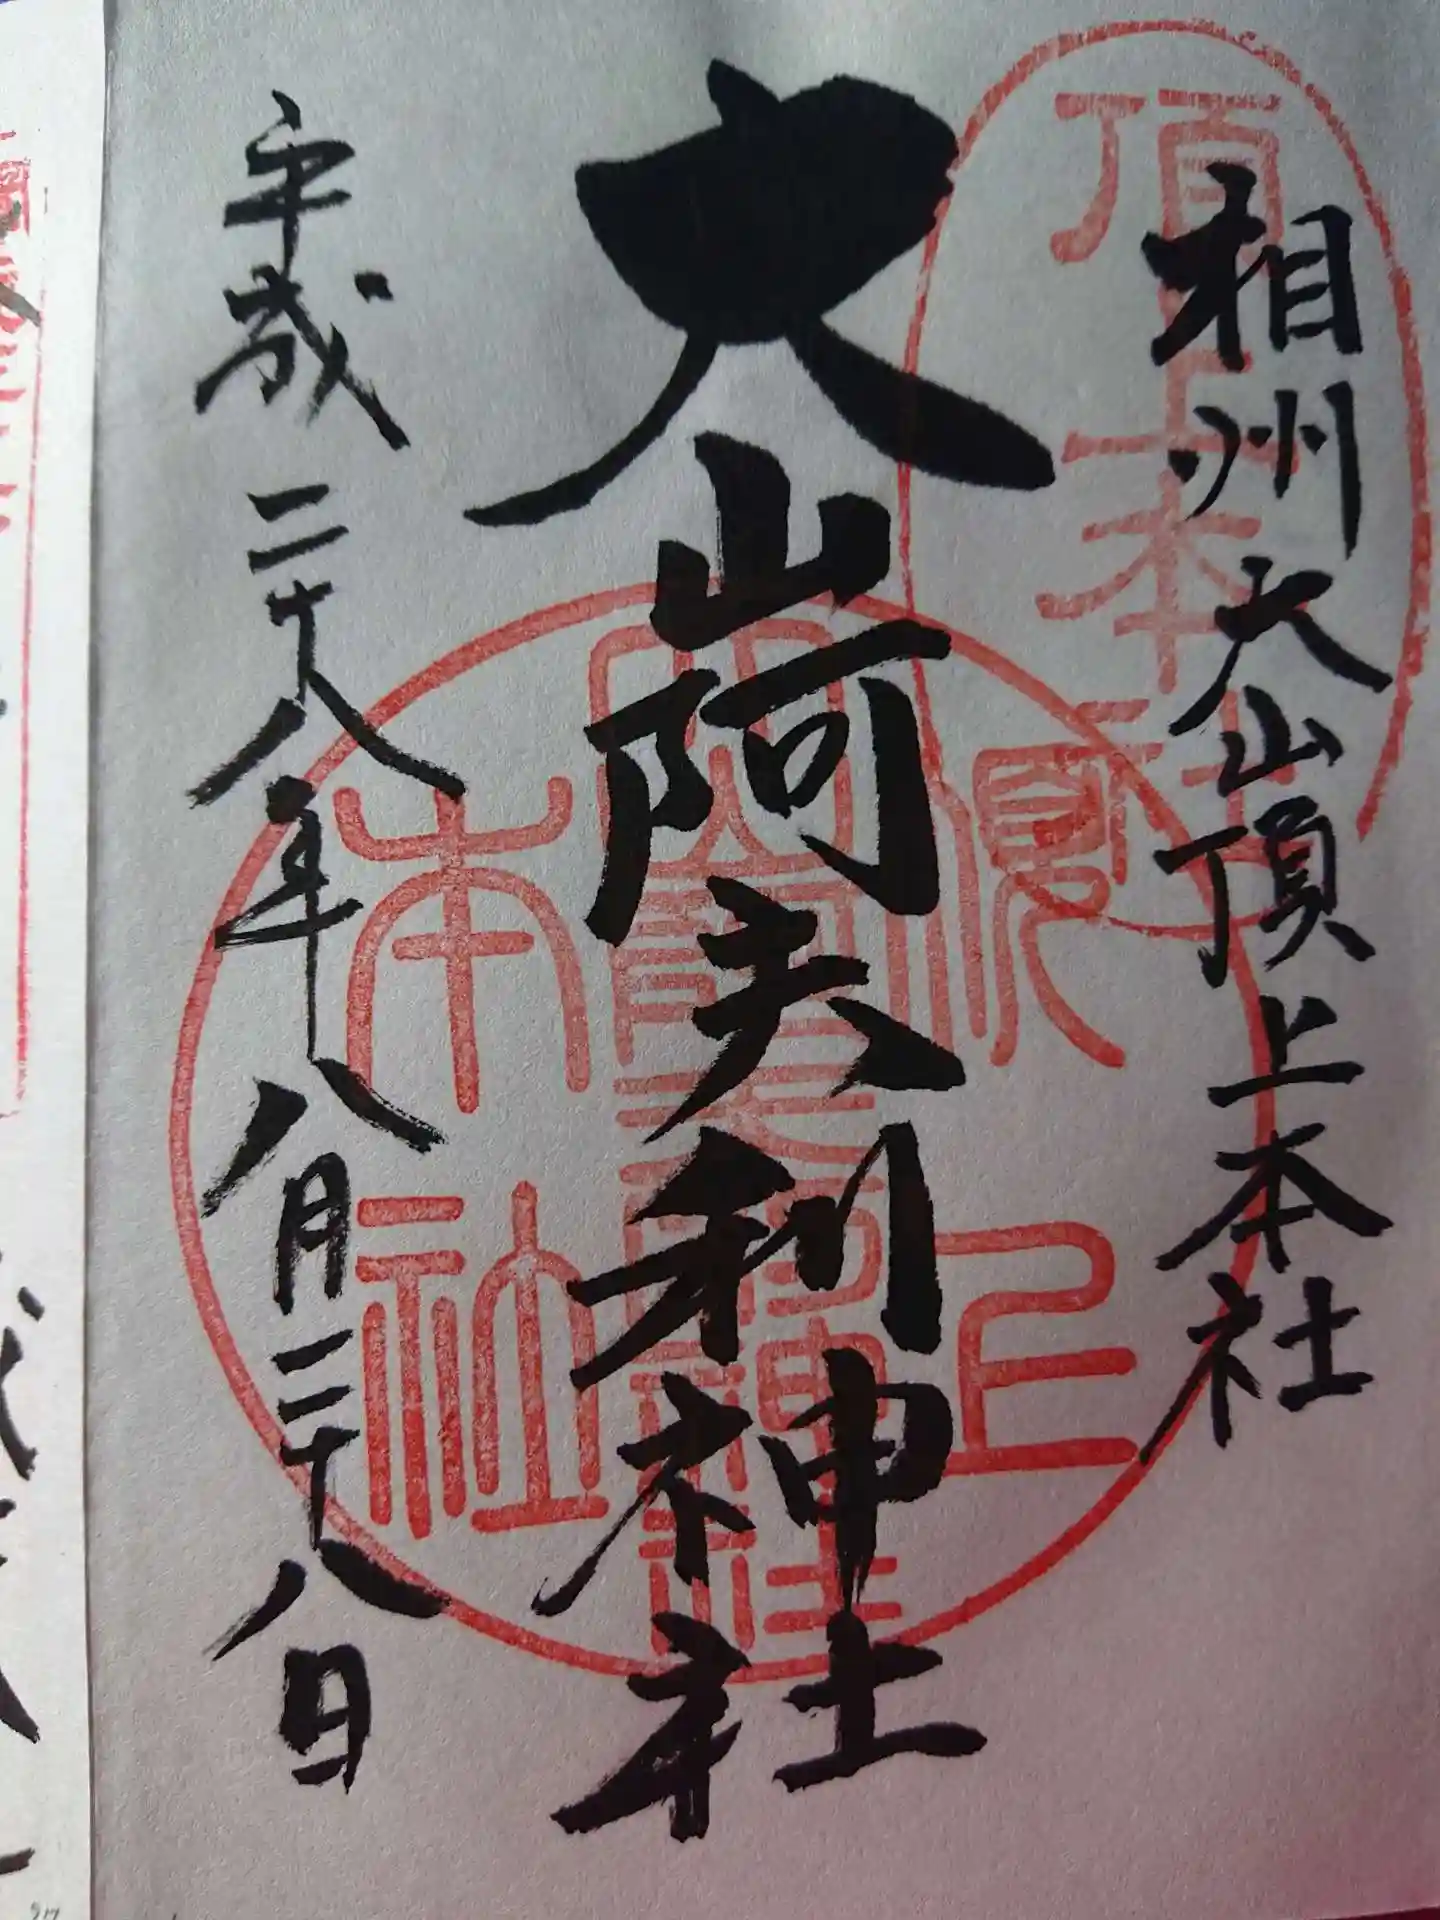 相州大山頂上本社
大山阿夫利神社
平成二十八年八月二十八日
頂上本社
頂上
本社